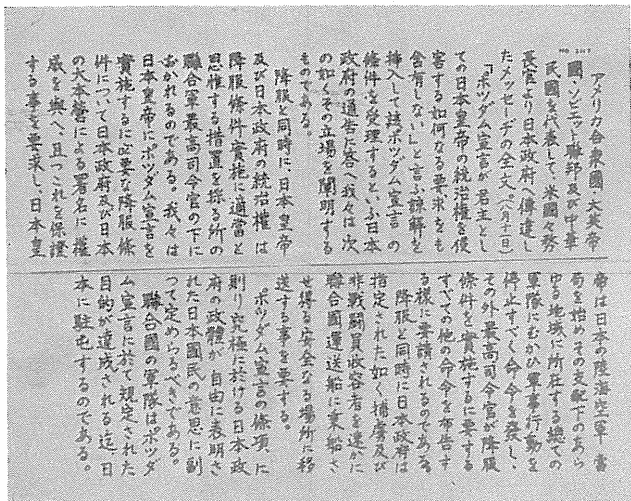 アメリカ合衆國、大英帝
國、ソビエット聯邦及び中華
民國を代表して、米國々務
長官より日本政府へ傳達し
たメッセーヂの全文。(八月十一日)
「ポツダム宣言が君主とし
ての日本皇帝の統治權を侵
害する如何なる要求をも
含有しない」と言ふ諒解を
挿入して該ポツダム宣言の
條件を受理するといふ日本
政府の通告に答へ我々は次
の如くその立場を闡明する
ものである。
降服と同時に、日本皇帝
及び日本政府の統治權は
降服條件實施に適當と
思惟する措置を採る所の
聯合軍最高司令官の下に
おかれるのである。我々は
日本皇帝にポツダム宣言を
實施するに必要な降服條
件について日本政府及び日本
の大本營による署名に權
威を與へ、且つこれを保證
する事を要求し、日本皇
帝は日本の陸海空軍當
局を始めその支配下のあら
ゆる地域に所在する總ての
軍隊にむかひ軍事行動を
停止すべく命令を發し、
その外最高司令官が降服
條件を實施するに要する
すべての他の命令を布告す
る樣に要請されるのである。
降服と同時に日本政府は
指定された如く捕虜及び
非戰鬪員收容者を速かに
聯合國運送船に乘船さ
せ得る安全なる場所に移
送する事を要する。
ポツダム宣言の條項に
則り究極に於ける日本政
府の政體が自由に表明さ
れた日本國民の意思に副
つて定めらるべきである。
聯合國の軍隊はポツダ
ム宣言に於て規定された
目的が達成される迄、日
本に駐屯するのである。